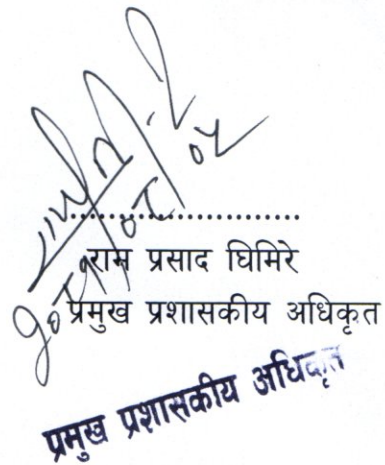 ..............................
राम प्रसाद घिमिरे
प्रमुख प्रशासकीय अधिकृत
प्रमुख प्रशासकीय अधिकृत